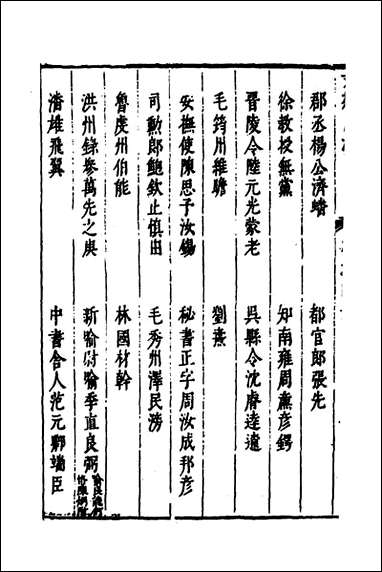 郡丞楊公濟蟠
都官郎張先
徐教授無黨
知南雍周薰彥鍔
晉陵令陸元光蒙老
吳縣令沈睿達遼
毛筠州維瞻
劉燾
安撫使陳思予汝錫
秘書正字周汝成邦彥
司勲郎鮑欽止慎由
毛秀州澤民滂
魯虔州伯能
林國材幹
洪州錄參萬先之庚
新喻尉喻季直良弼
潘雄飛翼
中書舍人范元卿端臣